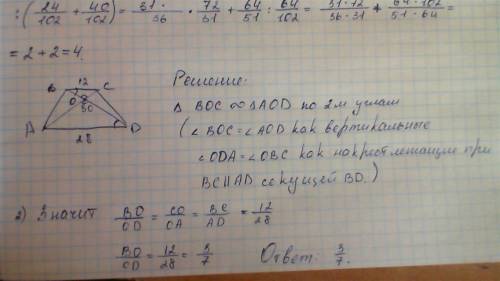 : ( 24/102 + 40/102 ) = 51 · /36 · 72/51 + 64/51 : 64/102 = 51·72/36·51 + 64·102/51·64 =
= 2 + 2 = 4.
Решение:
△ BOC ∞ △AOD по 2м углам
( ∠ BOC = ∠ AOD как вертикальные
∠ ODA = ∠ OBC как накрест лежащие при
BC || AD секущей BD. )
B 12 C
O
A 28 D
2) Значит BO/OD = CO/OA = BC/AD = 12/28
BO/OD = 12/28 = 3/7 Ответ: 3/7.